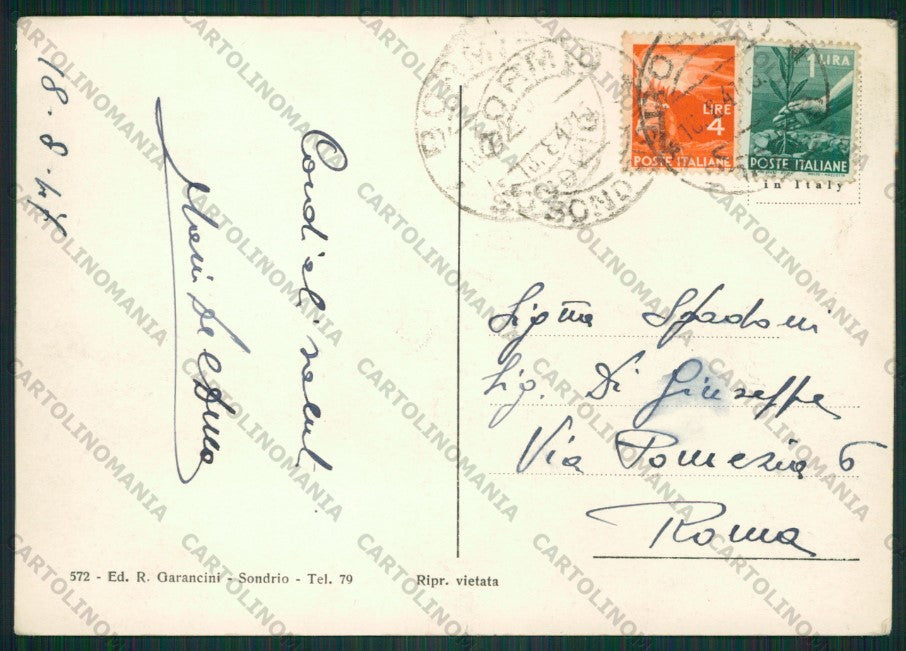 18-8-47
Cordiali saluti
BORMIO
SONDRIO
LIRE
4
POSTE ITALIANE
1 LIRA
POSTE ITALIANE
in Italy
Sig.na Spadoni
Sig. Di Giuseppe
Via Pomezia 6
Roma
572 - Ed. R. Garancini - Sondrio - Tel. 79
Ripr. vietata
CARTOLINOMANIA